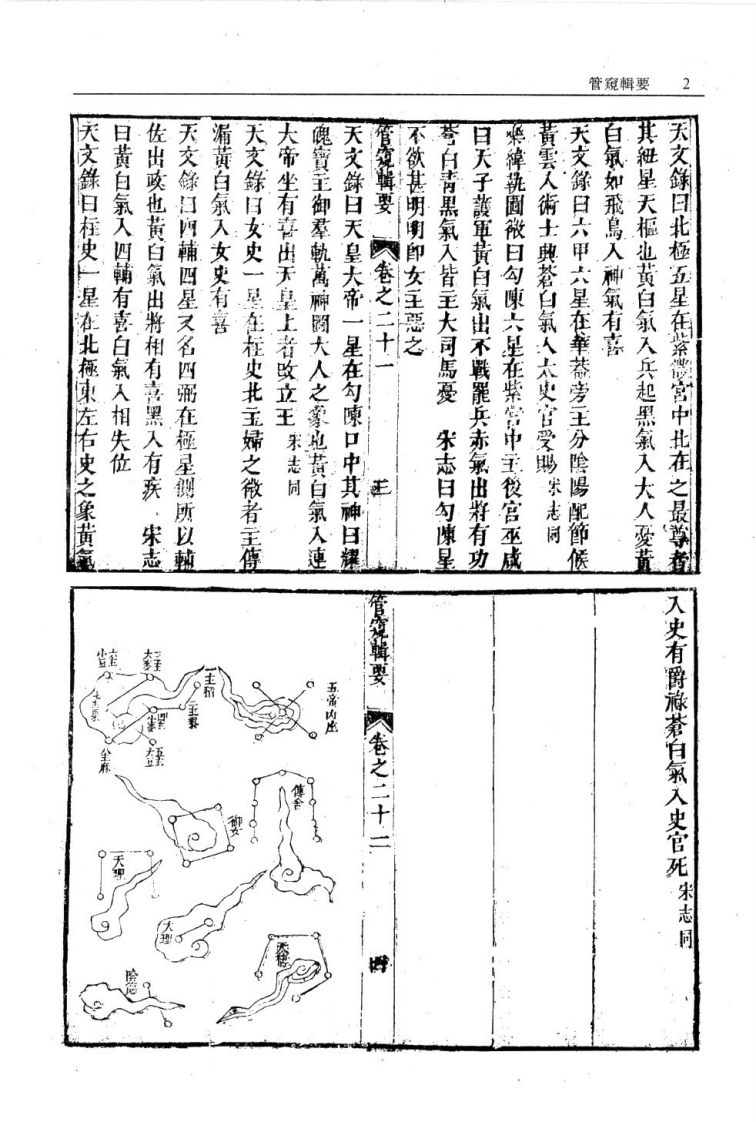 管窺輯要 2
天文錄曰北極五星在紫微宮中北在之最尊者
其紐星天樞也黃白氣入兵起黑氣入大人憂黃
白氣如飛鳥入神氣有喜
天文錄曰六甲六星在華蓋旁主分陰陽配節候
黃雲入術士興蒼白氣入太史官受賜宋志同
樂緯執圖徵曰勾陳六星在紫宮中主後宮巫咸
曰天子護軍黃白氣出不戰罷兵赤氣出將有功
蒼白青黑氣入皆主大司馬憂 宋志曰勾陳星
不欲甚明明即女主惡之
管窺輯要 卷之二十一 三
天文錄曰天皇大帝一星在勾陳口中其神曰耀
魄寶主御羣執萬神圖大人之象也黃白氣入連
大帝坐有喜出天皇上者改立王 宋志同
天文錄曰女史一星在柱史北主婦之微者主傳
漏黃白氣入女史有喜
天文錄曰四輔四星又名四弼在極星側所以輔
佐出政也黃白氣出將相有喜黑入有疾 宋志
曰黃白氣入四輔有喜白氣入相失位
天文錄曰柱史一星在北極東左右史之象黃氣
入史有爵祿蒼白氣入史官死宋志同
管窺輯要 卷之二十一 四
五帝內座
一主稻
二主黍
三主
大麥
四主
小麥
五主
大豆
六主
小豆
傳舍
御女
天理
大理
天棓
陰德